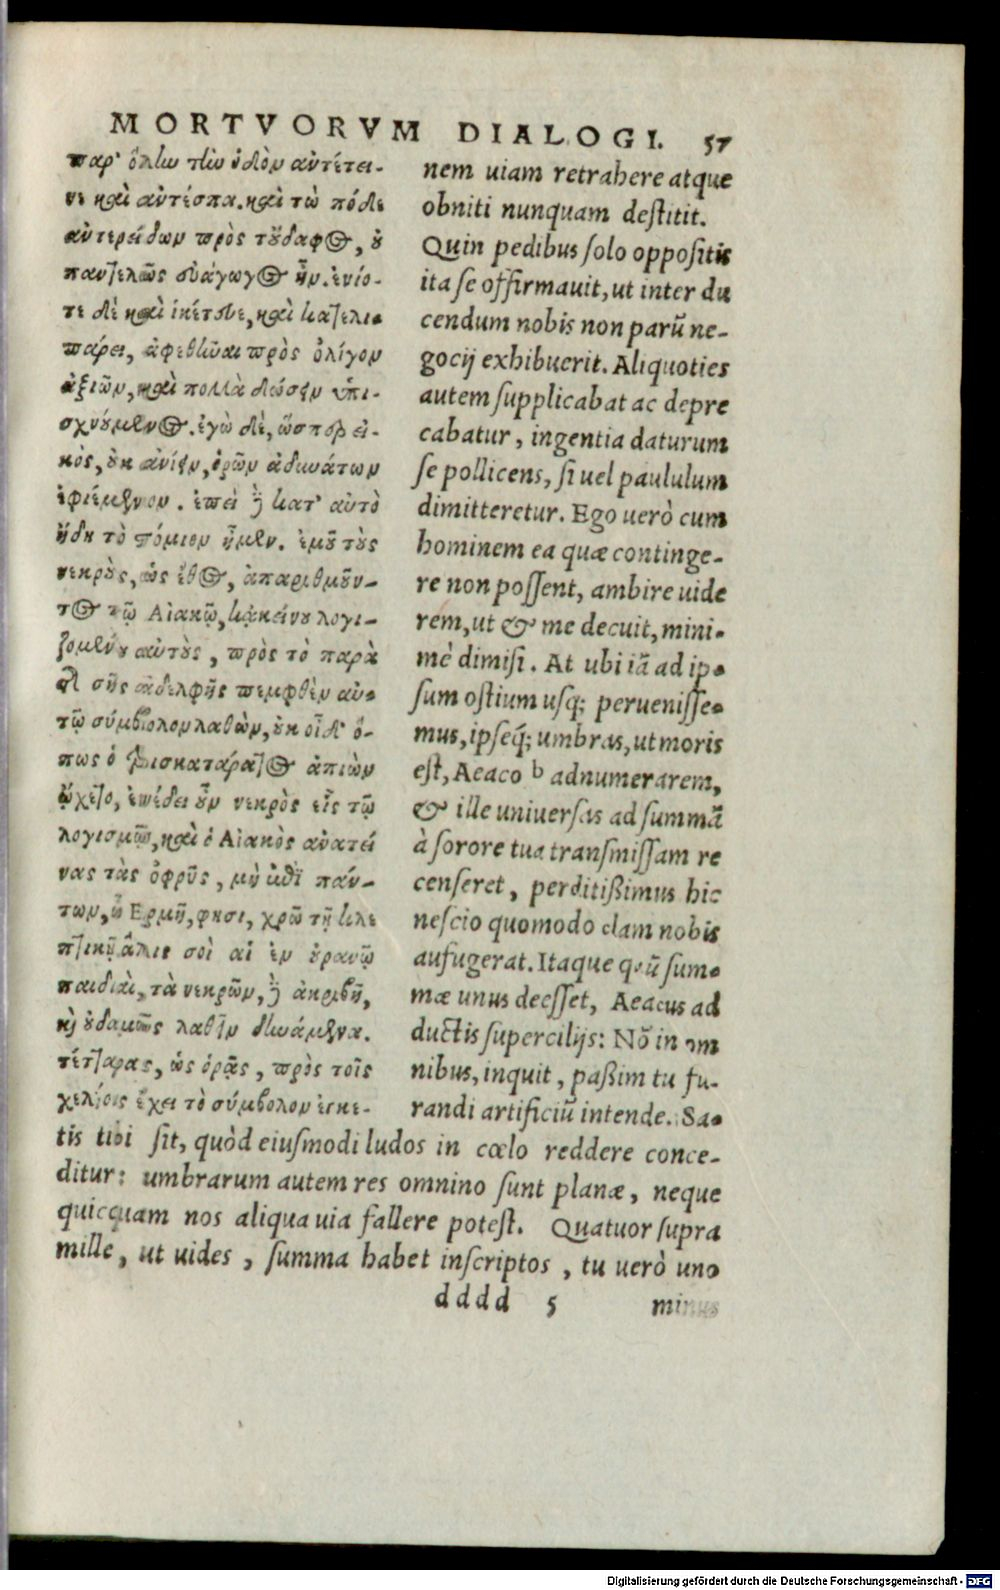 MORTVORVM DIALOGI. 57
παρ' ὅλην τὴν ὁδὸν ἀντέτει-
νε καὶ ἀντέσπα. καὶ τὼ πόδε
ἀντερείδων πρὸς τοὔδαφος, οὐ
παντελῶς εὐάγωγος ἦν. ἐνίο-
τε δὲ καὶ ἱκέτευε, καὶ κατελι-
πάρει, ἀφεθῆναι πρὸς ὀλίγον
ἀξιῶν, καὶ πολλὰ δώσειν ὑπι-
σχνούμενος. ἐγὼ δὲ, ὥσπερ εἰ-
κὸς, οὐκ ἀνίειν, ὁρῶν ἀδυνάτων
ἐφιέμενον. ἐπεὶ δὲ κατ' αὐτὸ
ἤδη τὸ στόμιον ἦμεν. ἐμοῦ τοὺς
νεκροὺς, ὡς ἔθος, ἀπαριθμοῦν-
τος τῷ Αἰακῷ, κἀκείνου λογι-
ζομένου αὐτοὺς, πρὸς τὸ παρὰ
τῆς σῆς ἀδελφῆς πεμφθὲν αὐ-
τῷ σύμβολον λαθὼν, οὐκ οἶδ' ὅ-
πως ὁ τρισκατάρατος ἀπιὼν
ᾤχετο, ἐνέδει οὖν νεκρὸς εἷς τῷ
λογισμῷ, καὶ ὁ Αἰακὸς ἀνατεί
νας τὰς ὀφρῦς, μὴ ἐπὶ πάν-
των, ὦ Ερμῆ, φησι, χρῶ τῇ κλε
πτικῇ ἅλις σοὶ αἱ ἐν οὐρανῷ
παιδιαὶ, τὰ νεκρῶν, δὲ ἀκριβῆ,
καὶ οὐδαμῶς λαθεῖν δυνάμενα.
τέτταρας, ὡς ὁρᾷς, πρὸς τοῖς
χιλίοις ἔχει τὸ σύμβολον ἐγκε-
nem uiam retrahere atque
obniti nunquam destitit.
Quin pedibus solo oppositis
ita se offirmauit, ut inter du
cendum nobis non parũ ne-
gocij exhibuerit. Aliquoties
autem supplicabat ac depre
cabatur, ingentia daturum
se pollicens, si uel paululum
dimitteretur. Ego uerò cum
hominem ea quæ continge-
re non possent, ambire uide
rem, ut & me decuit, mini-
mè dimisi. At ubi iã ad ip-
sum ostium usq; peruenisse-
mus, ipseq́; umbras, ut moris
est, Aeaco b adnumerarem,
& ille uniuersas ad summã
à sorore tua transmissam re
censeret, perditißimus hic
nescio quomodo clam nobis
aufugerat. Itaque qũ sum-
mæ unus deesset, Aeacus ad
ductis supercilijs: Nõ in om
nibus, inquit, paßim tu fu-
randi artificiũ intende. Sa-
tis tibi sit, quòd eiusmodi ludos in cœlo reddere conce-
ditur: umbrarum autem res omnino sunt planæ, neque
quicquam nos aliqua uia fallere potest. Quatuor supra
mille, ut uides, summa habet inscriptos, tu uerò uno
dddd 5 minus
Digitalisierung gefördert durch die Deutsche Forschungsgemeinschaft - DFG